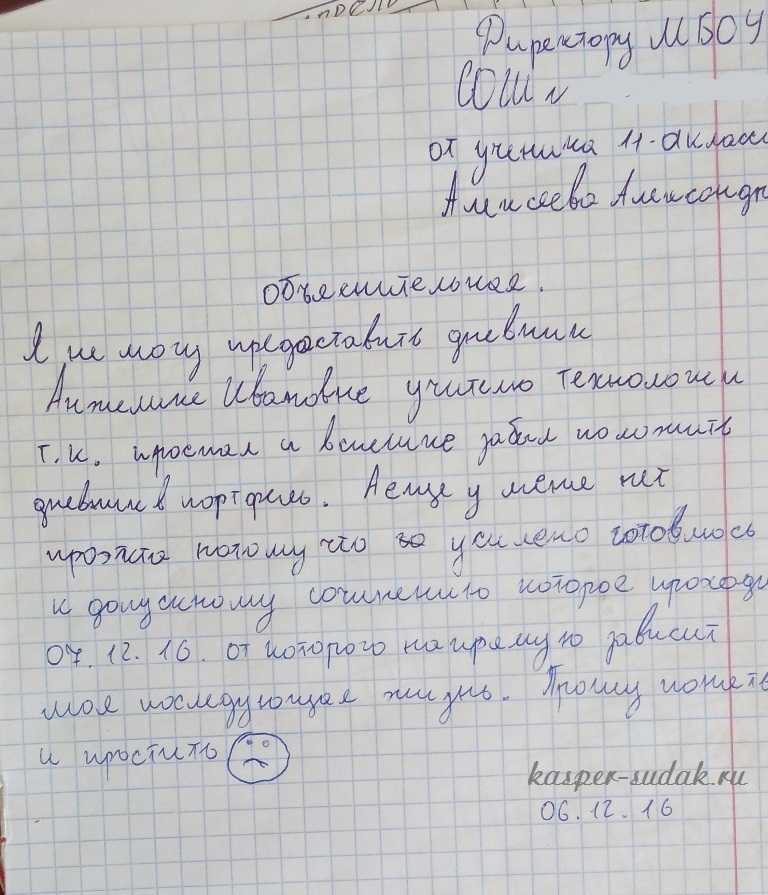 Директору МБОУ
СОШ №
от ученика 11-а класс
Алексеева Александр
Объяснительная.
Я не могу предоставить дневник
Анжелике Ивановне учителю технологии
т.к. проспал и вспешке забыл положить
дневник в портфель. А еще у меня нет
проэкта потому что усилено готовлюсь
к допускному сочинению которое проходи
07.12.16. от которого напрямую зависит
моя последующая жизнь. Прошу понять
и простить
kasper-sudak.ru
06.12.16